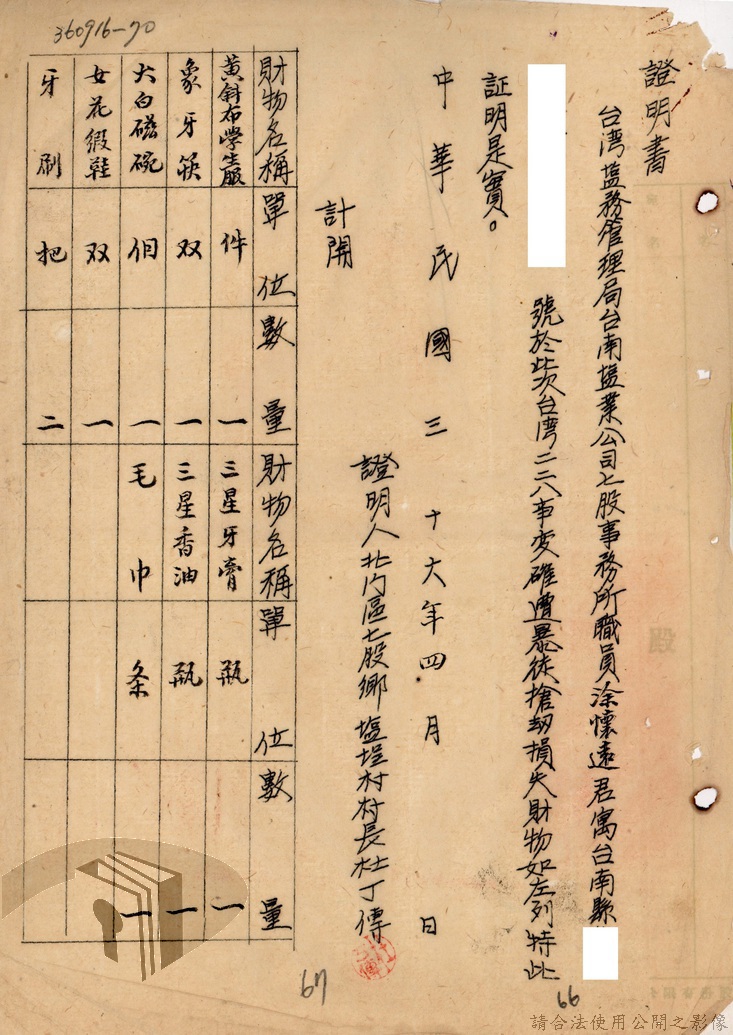 360916-70
證明書
台湾塩務管理局台南塩業公司七股事務所職員涂懷遠君寓台南縣
號於此次台湾二二八事变確遭暴徒搶刼損失財物如左列特此
証明是實。
中華民國三十六年四月 日
證明人北门區七股鄉塩埕村村長杜丁傳
計開
財物名稱 單位 數量 財物名稱 單位 數量
黃斜布学生服 件 一 三星牙膏 瓶 一
象牙筷 双 一 三星香油 瓶 一
大白磁碗 個 一 毛巾 条 一
女花缎鞋 双 一
牙刷 把 二
66
67
請合法使用公開之影像